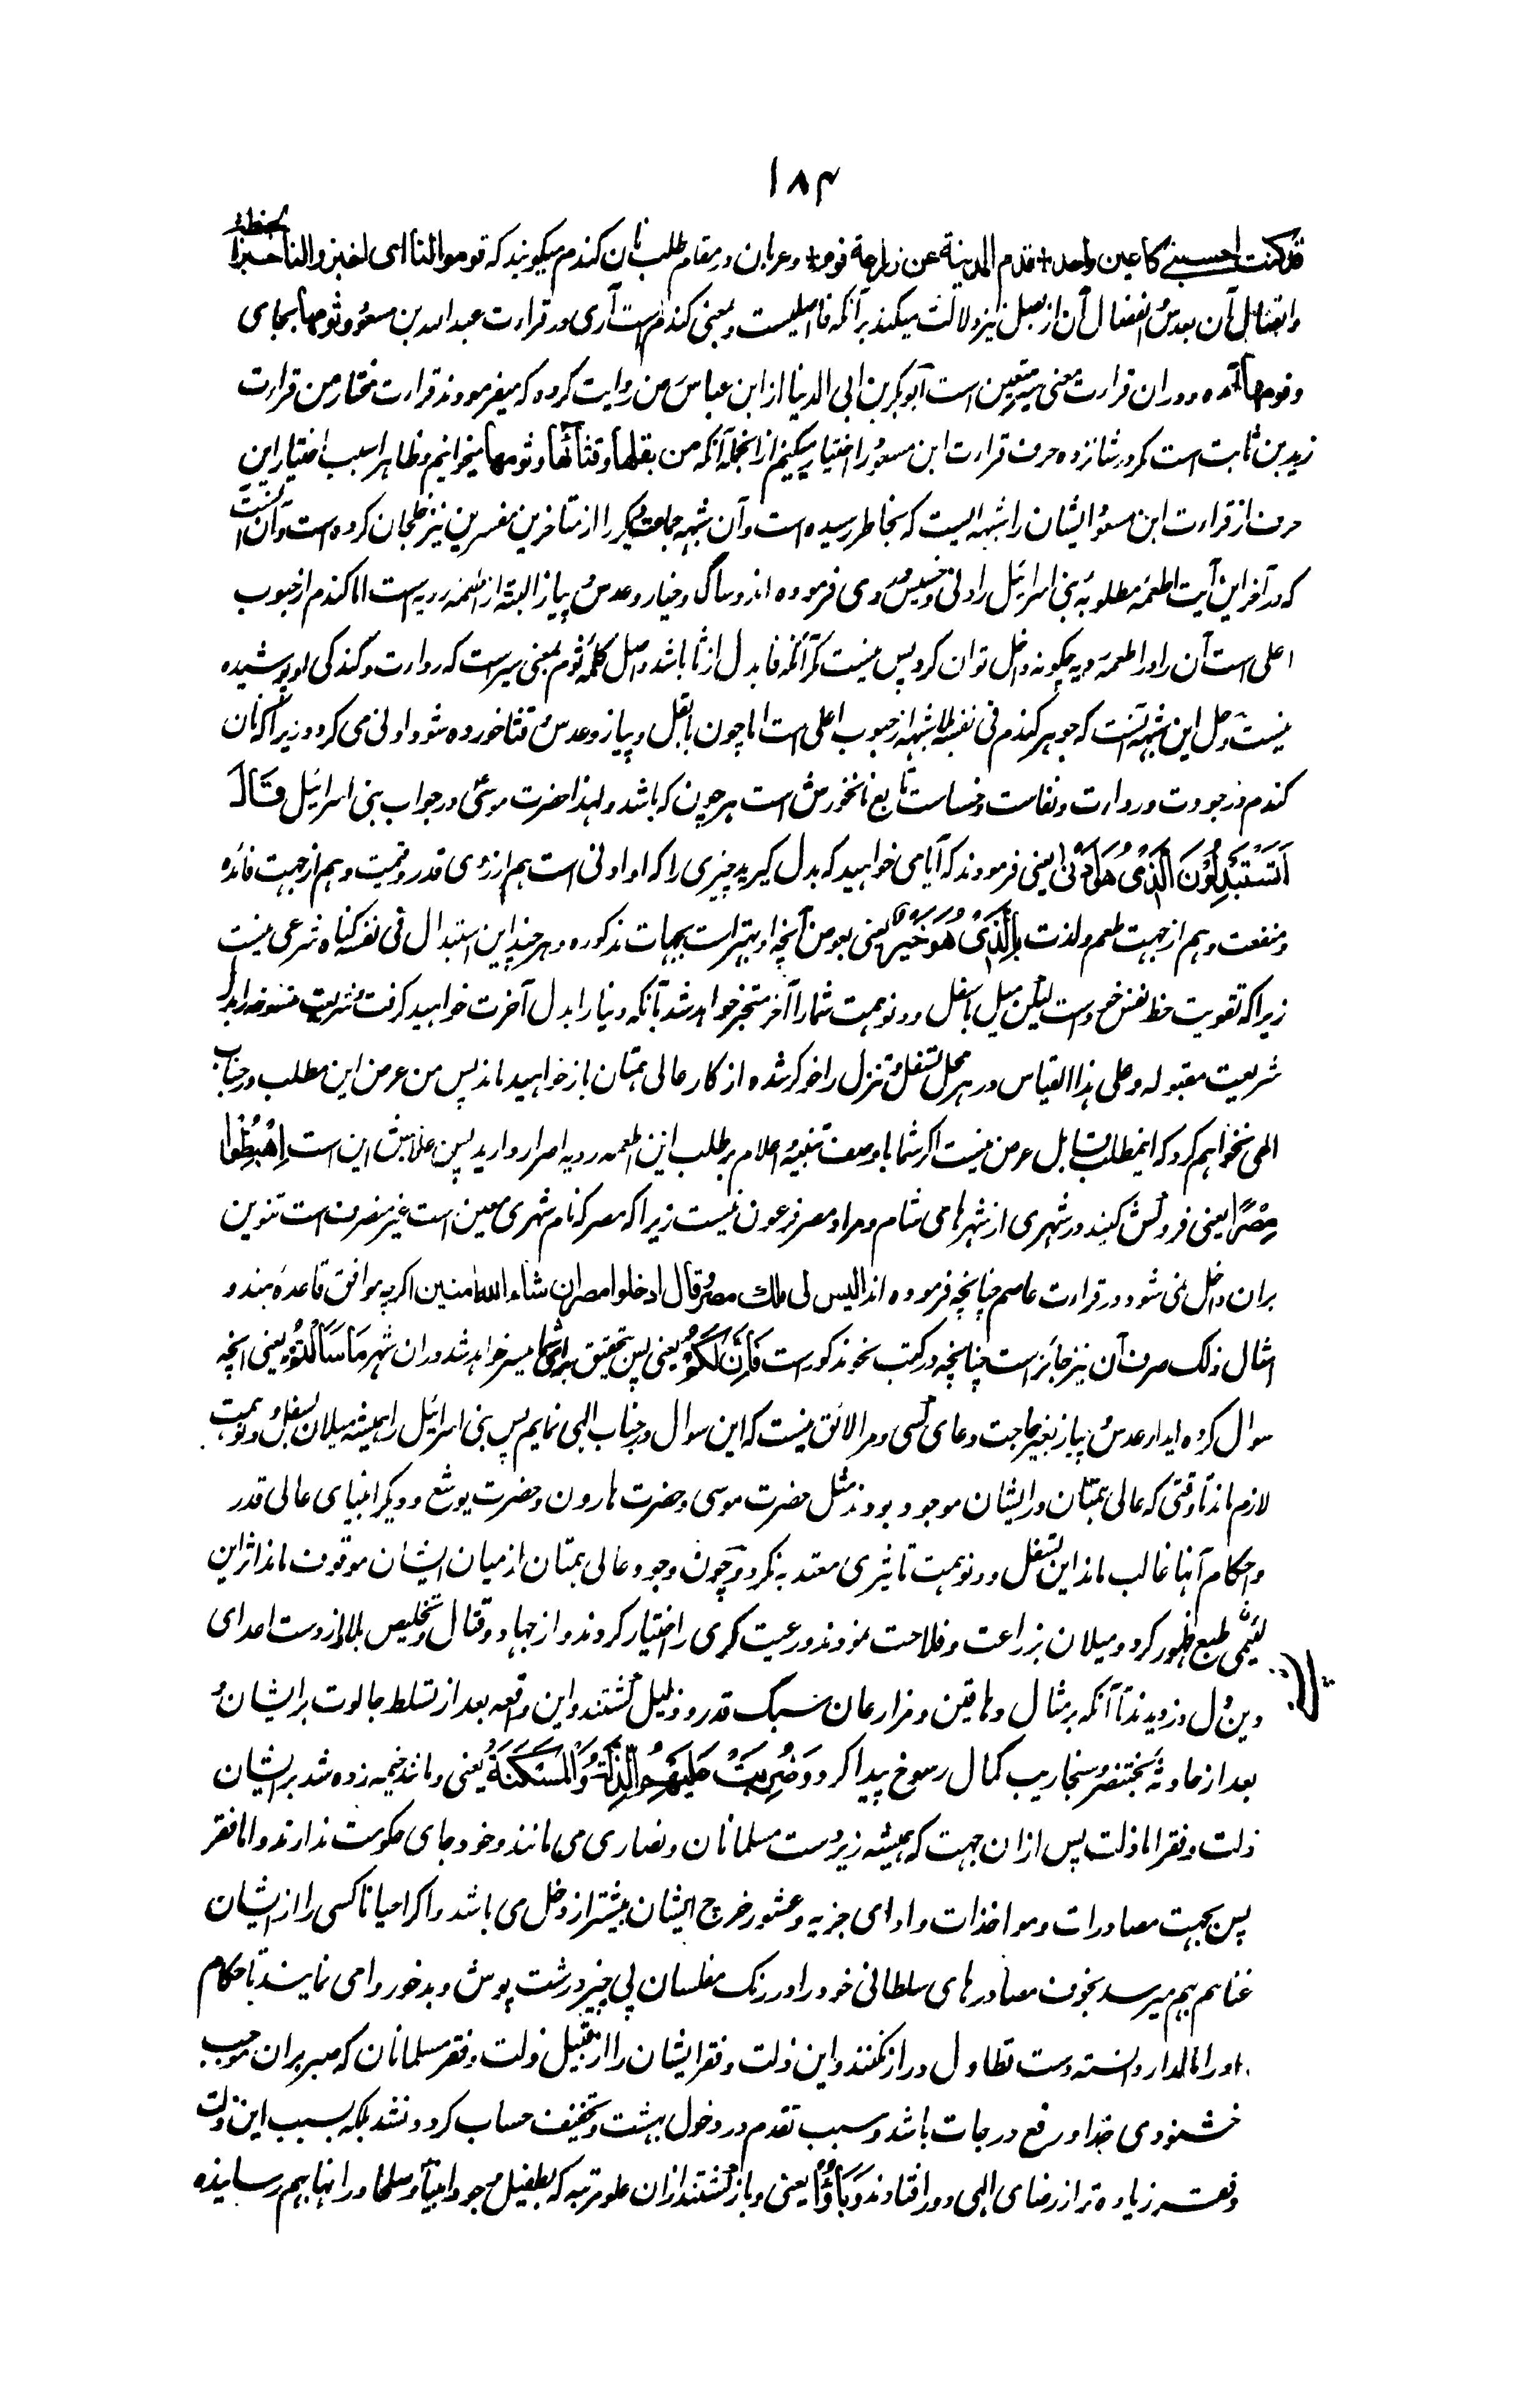 ۱۸۴
قد كنت احسبنى كاغين واحد + قدم المدينة عن زراعة فوم + وعربان در مقام طلب نان گندم میگویند که فوموا لنا ای اخبزوا لنا خبز الحنطة
واتصال آن بعدس و انفصال آن از بصل نیز دلالت میکند بر آنکه فا اصلیست و بمعنی گندم است آری در قراءت عبد الله بن مسعود وثومها بجای
وفومها آمده و در ان قراءت معنی سیر متعین است ابو بکر بن ابی الدنیا از ابن عباس رض روایت کرده که میفرمودند قراءت مختار من قراءت
زید بن ثابت است مگر در شانزده حرف قراءت ابن مسعود را اختیار میکنم از انجمله آنکه من بقلها وقثائها وثومها میخوانم و ظاهرا سبب اختیار این
حرف از قراءت ابن مسعود ایشان را شبهه ایست که بخاطر رسیده است و آن شبهه جماعه دیگر را از متاخرین مفسرین نیز خلجان کرده است و آن انست
که در آخر این آیت اطعمه مطلوبه بنی اسرائیل را دنی و خسیس و ردی فرموده اند و ساگ و خیار و عدس و پیاز البته از اطعمه ردیه است اما گندم از حبوب
اعلی است آن را در اطعمه دیه چگونه داخل توان کرد پس نیست مگر آنکه فا بدل از ثا باشد و اصل کلمه ثوم بمعنی سیر است که رداءت و گندگی او پوشیده
نیست و حل این شبهه آنست که جوهر گندم فی نفسه بلا شبهه از حبوب اعلی است اما چون با بقل و پیاز و عدس و قثا خورده شود ادنی می گردد زیرا که نان
گندم در جودت و رداءت و نفاست و خساست تابع نانخورش است هر چون که باشد و لهذا حضرت موسیٰ در جواب بنی اسرائیل قَالَ
اَتَسْتَبْدِلُوْنَ الَّذِىْ هُوَ اَدْنٰى یعنی فرمودند که آیا می خواهید که بدل گیرید چیزی را که او ادنی است هم از روی قدر و قیمت و هم از جهت فائده
و منفعت و هم از جهت طعم و لذت بِالَّذِىْ هُوَ خَيْرٌ یعنی بعوض آنچه او بهتر است بجهات مذکوره و هر چند این استبدال فی نفسه گناه شرعی نیست
زیرا که تقویت حظ نفس خود است لیکن میل باسفل و دنو همت شما را آخر منجر خواهد شد تا آنکه دنیا را بدل آخرت خواهید گرفت و شریعت منسوخه را بدل
شریعت مقبوله و علی هذا القیاس در هر محل تسفل و تنزل را خوگر شده از کار عالی همتان باز خواهید ماند پس من عرض این مطلب در جناب
الهی نخواهم کرد که اینمطلب قابل عرض نیست اگر شما باوصف تنبیه و اعلام بر طلب این اطعمه ردیه اصرار دارید پس علاجش این است اِهْبِطُوْا
مِصْرًا یعنی فروکش کنید در شهری از شهرهای شام و مراد مصر فرعون نیست زیرا که مصر که نام شهری معین است غیر منصرف است تنوین
بران داخل نمی شود در قراءت عاصم چنانچه فرموده اند الیس لی ملك مصر وقال ادخلوا مصر ان شاء الله امنین اگر چه موافق قاعده هند و
امثال ذلک صرف آن نیز جائز است چنانچه در کتب نحو مذکور است فَاِنَّ لَكُمْ یعنی پس تحقیق برای شما میسر خواهد شد در ان شهر مَا سَاَلْتُمْ یعنی انچه
سوال کرده اید از عدس و پیاز بغیر حاجت دعای کسی و مرا لائق نیست که این سوال در جناب الهی نمایم پس بنی اسرائیل را همیشه میلان بسفل و دنو همت
لازم ماند تا وقتی که عالی همتان در ایشان موجود بودند مثل حضرت موسی و حضرت هارون و حضرت یوشع و دیگر انبیای عالی قدر
و احکام آنها غالب ماند این تسفل و دنو همت تاثیری معتد به نکرد و چون وجود عالی همتان از میان ایشان موقوف ماند اثر این
لئیمی طبع ظهور کرد و میلان بزراعت و فلاحت نمودند و رعیت گری را اختیار کردند و از جهاد و قتال و تخلیص بلاد از دست اعدای
دین دل دزدیدند تا آنکه بر مثال دهاقین و مزارعان سبک قدر و ذلیل گشتند و این واقعه بعد از تسلط جالوت بر ایشان و
بعد از حادثه بختنصر و سنجاریب کمال رسوخ پیدا کرد وَضُرِبَتْ عَلَيْهِمُ الذِّلَّةُ وَالْمَسْكَنَةُ یعنی و مانند خیمه زده شد بر ایشان
ذلت و فقر اما ذلت پس ازان جهت که همیشه زیردست مسلمانان و نصاری می مانند و خود جای حکومت ندارند و اما فقر
پس بجهت مصادرات و مواخذات و ادای جزیه و عشور خرچ ایشان بیشتر از دخل می باشد و اگر احیانا کسی را از ایشان
غنا هم بهم میرسد بخوف مصادرهای سلطانی خود را در رنگ مفلسان بی چیز درشت پوش و بدخور وا می نمایند تا حکام
او را مالدار دانسته دست تطاول دراز نکنند و این ذلت و فقر ایشان را از قبیل ذلت و فقر مسلمانان که صبر بران موجب
خشنودی خدا و رفع درجات باشد و سبب تقدم در دخول بهشت و تخفیف حساب گردد نشد بلکه بسبب این ذلت
و فقر زیاده تر از رضای الهی دور افتادند وَبَآؤُا یعنی و بازگشتند ازان علو مرتبه که بطفیل وجود انبیا و صلحا در انها بهم رسانیده